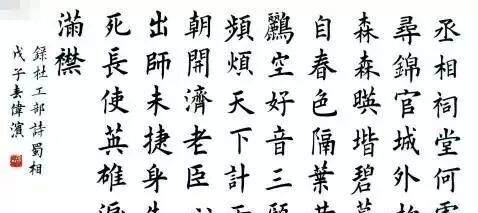 丞相祠堂何
尋錦官城外
森森暎堦碧草
自春色隔葉
鸝空好音三顧
頻煩天下計
朝開濟老臣心
出師未捷身先
死長使英雄淚
滿襟
錄杜工部詩蜀相
戊子春偉濱